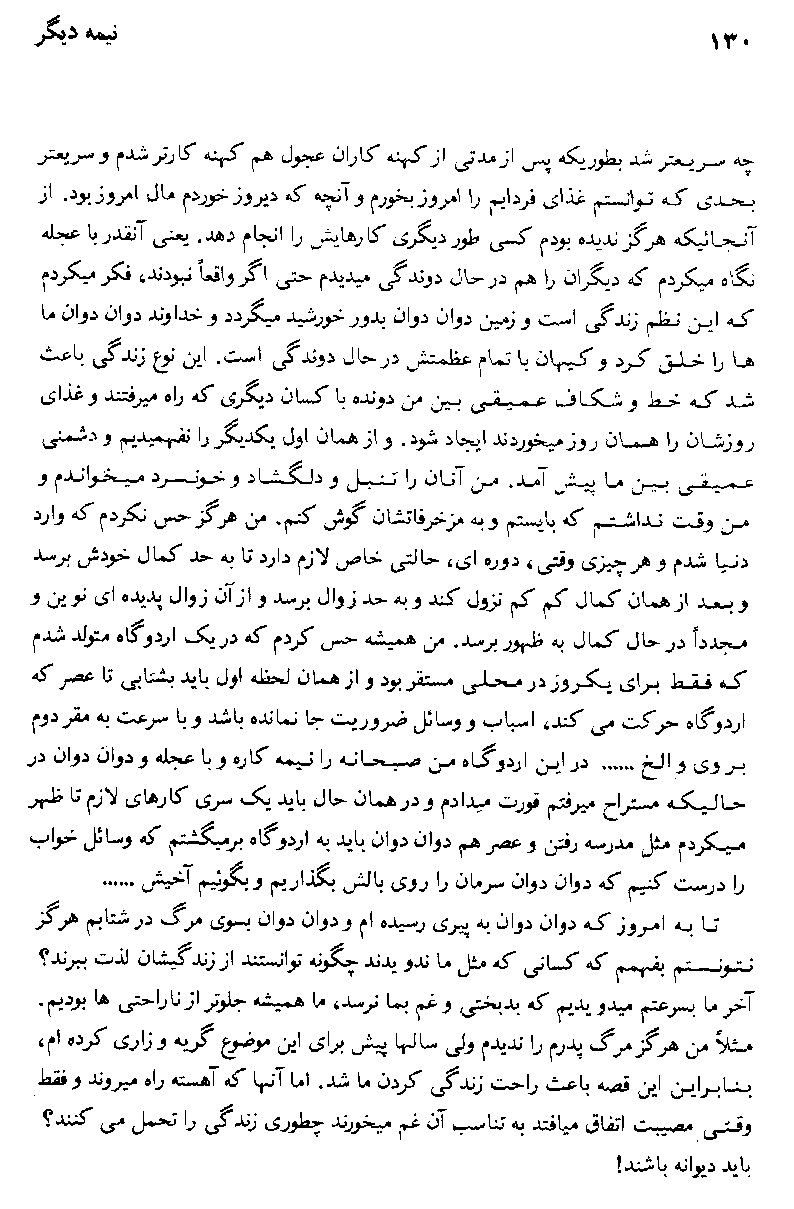 ۱۳۰
نیمه دیگر
چه سریعتر شد بطوریکه پس از مدتی از کهنه کاران عجول هم کهنه کارتر شدم و سریعتر
بحدی که توانستم غذای فردایم را امروز بخورم و آنچه که دیروز خوردم مال امروز بود. از
آنجائیکه هرگز ندیده بودم کسی طور دیگری کارهایش را انجام دهد. یعنی آنقدر با عجله
نگاه میکردم که دیگران را هم در حال دوندگی میدیدم حتی اگر واقعاً نبودند، فکر میکردم
که این نظم زندگی است و زمین دوان دوان بدور خورشید میگردد و خداوند دوان دوان ما
ها را خلق کرد و کیهان با تمام عظمتش در حال دوندگی است. این نوع زندگی باعث
شد که خط و شکاف عمیقی بین من دونده با کسان دیگری که راه میرفتند و غذای
روزشان را همان روز میخوردند ایجاد شود. و از همان اول یکدیگر را نفهمیدیم و دشمنی
عمیقی بین ما پیش آمد. من آنان را تنبل و دلگشاد و خونسرد میخواندم و
من وقت نداشتم که بایستم و به مزخرفاتشان گوش کنم. من هرگز حس نکردم که وارد
دنیا شدم و هر چیزی وقتی، دوره ای، حالتی خاص لازم دارد تا به حد کمال خودش برسد
و بعد از همان کمال کم کم نزول کند و به حد زوال برسد و از آن زوال پدیده ای نوین و
مجدداً در حال کمال به ظهور برسد. من همیشه حس کردم که در یک اردوگاه متولد شدم
که فقط برای یکروز در محلی مستقر بود و از همان لحظه اول باید بشتابی تا عصر که
اردوگاه حرکت می کند، اسباب و وسائل ضروریت جا نمانده باشد و با سرعت به مقر دوم
بروی و الخ ...... در این اردوگاه من صبحانه را نیمه کاره و با عجله و دوان دوان در
حالیکه مستراح میرفتم قورت میدادم و در همان حال باید یک سری کارهای لازم تا ظهر
میکردم مثل مدرسه رفتن و عصر هم دوان دوان باید به اردوگاه برمیگشتم که وسائل خواب
را درست کنیم که دوان دوان سرمان را روی بالش بگذاریم و بگوئیم آخیش ......
تا به امروز که دوان دوان به پیری رسیده ام و دوان دوان بسوی مرگ در شتابم هرگز
نتونستم بفهمم که کسانی که مثل ما ندویدند چگونه توانستند از زندگیشان لذت ببرند؟
آخر ما بسرعتم میدویدیم که بدبختی و غم بما نرسد، ما همیشه جلوتر از ناراحتی ها بودیم.
مثلاً من هرگز مرگ پدرم را ندیدم ولی سالها پیش برای این موضوع گریه و زاری کرده ام،
بنابراین این قصه باعث راحت زندگی کردن ما شد. اما آنها که آهسته راه میروند و فقط
وقتی مصیبت اتفاق میافتد به تناسب آن غم میخورند چطوری زندگی را تحمل می کنند؟
باید دیوانه باشند!